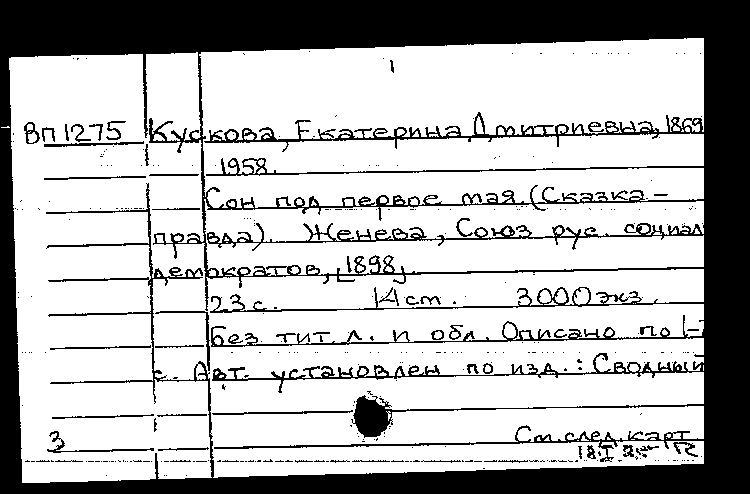 1
Вп1275 Кускова, Екатерина Дмитриевна, 1869
1958.
Сон под первое мая. (Сказка –
правда). Женева, Союз рус. социал
демократов, [1898].
23 с. 14 cm. 3000 экз.
Без тит. л. и обл. Описано по 1-
с. Авт. установлен по изд.: Сводный
3 См. след. карт
18.I